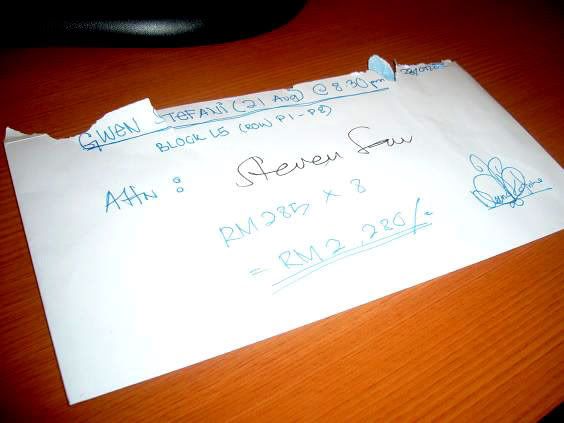 GWEN STEFANI (21 Aug) @ 8.30 pm
BLOCK L5 (ROW P1 - P8)
Attn : Steven
RM 285 x 8
= RM 2,280/-